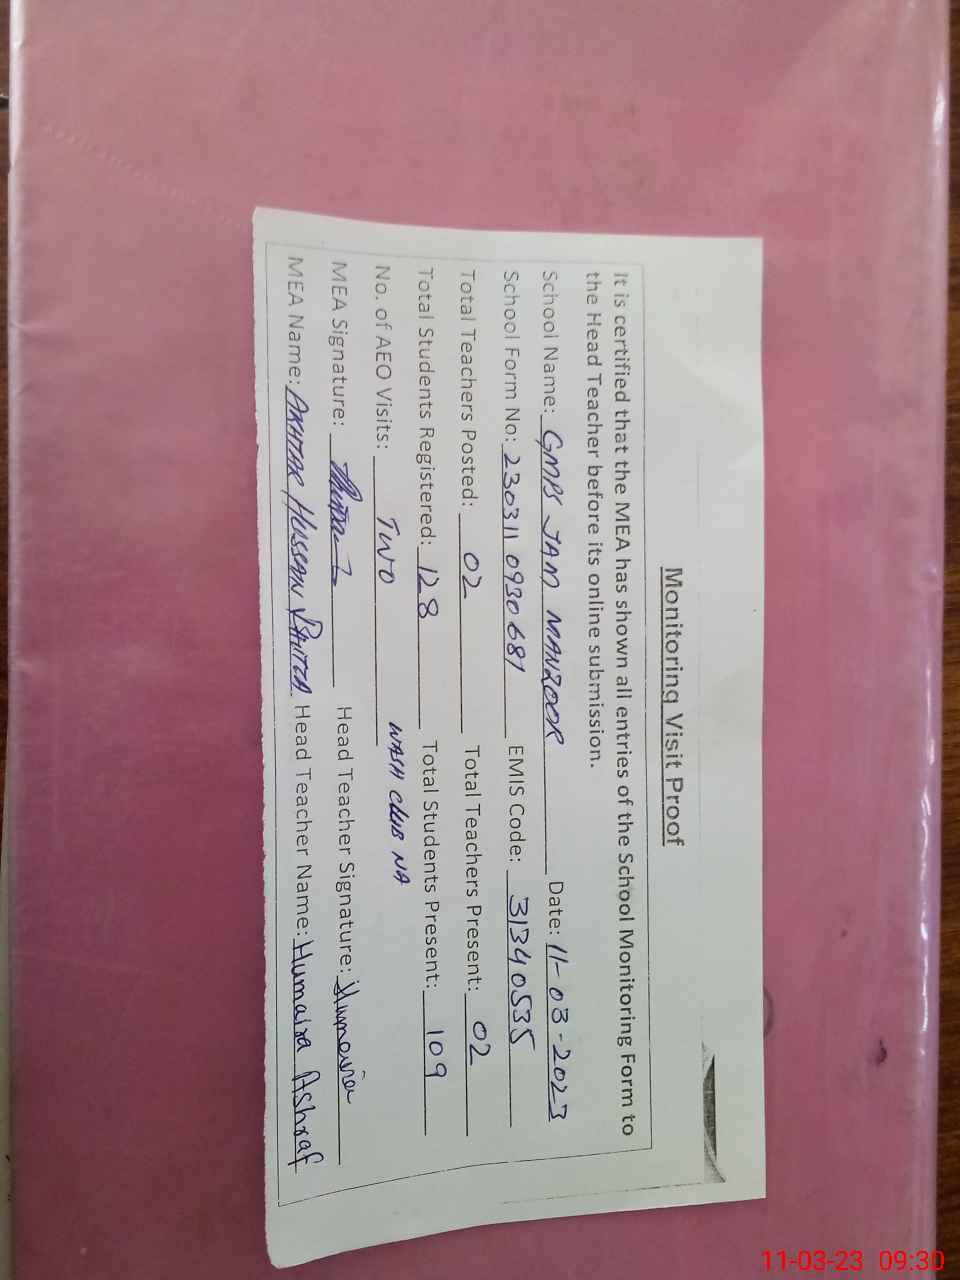 Monitoring Visit Proof
It is certified that the MEA has shown all entries of the School Monitoring Form to
the Head Teacher before its online submission.
School Name: GMPS JAM MANZOOR Date: 11-03-2023
School Form No: 230311 0930681 EMIS Code: 31340535
Total Teachers Posted: 02 Total Teachers Present: 02
Total Students Registered: 128 Total Students Present: 109
No. of AEO Visits: TWO WASH CLUB NA
MEA Signature: Head Teacher Signature: Humaira
MEA Name: AKHTAR HUSSAIN Head Teacher Name: Humaira Ashraf
11-03-23 09:30